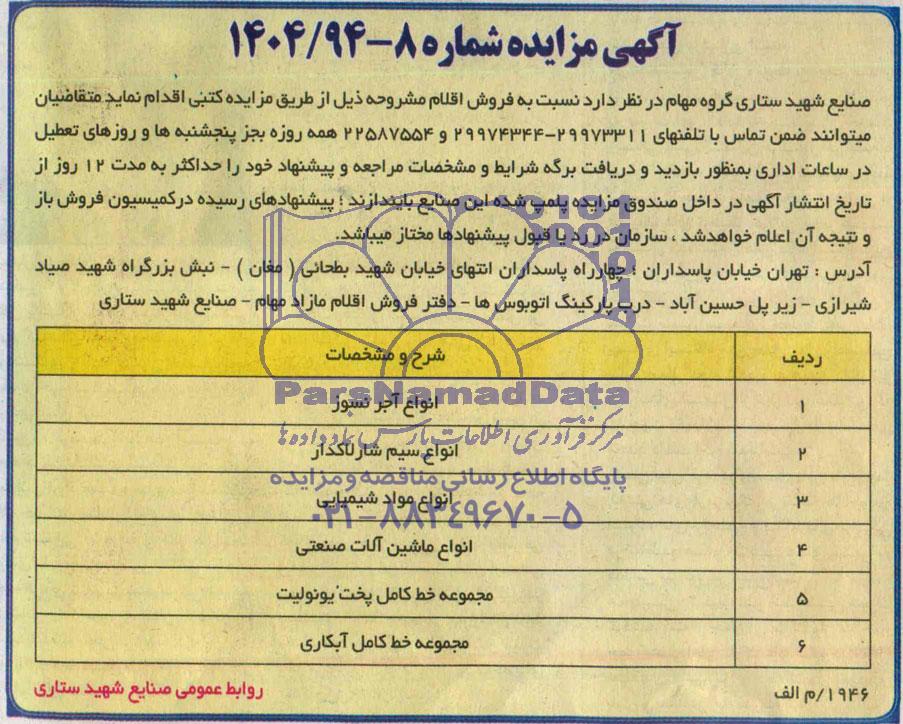 آگهی مزایده شماره ۸-۱۴۰۴/۹۴
صنایع شهید ستاری گروه مهام در نظر دارد نسبت به فروش اقلام مشروحه ذیل از طریق مزایده کتبی اقدام نماید متقاضیان
میتوانند ضمن تماس با تلفنهای ۲۹۹۷۳۳۱۱-۲۹۹۷۴۳۴۴ و ۲۲۵۸۷۵۵۴ همه روزه بجز پنجشنبه ها و روزهای تعطیل
در ساعات اداری بمنظور بازدید و دریافت برگه شرایط و مشخصات مراجعه و پیشنهاد خود را حداکثر به مدت ۱۲ روز از
تاریخ انتشار آگهی در داخل صندوق مزایده پلمپ شده این صنایع بایندازند ؛ پیشنهادهای رسیده درکمیسیون فروش باز
و نتیجه آن اعلام خواهدشد ، سازمان در رد یا قبول پیشنهادها مختاز میباشد.
آدرس : تهران خیابان پاسداران ؛ چهارراه پاسداران انتهای خیابان شهید بطحائی ( مغان ) - نبش بزرگراه شهید صیاد
شیرازی - زیر پل حسین آباد - درب پارکینگ اتوبوس ها - دفتر فروش اقلام مازاد مهام - صنایع شهید ستاری
ردیف شرح و مشخصات
۱ انواع آجر نسوز
۲ انواع سیم شارلاکدار
۳ انواع مواد شیمیایی
۴ انواع ماشین آلات صنعتی
۵ مجموعه خط کامل پخت یونولیت
۶ مجموعه خط کامل آبکاری
۱۹۴۶/م الف روابط عمومی صنایع شهید ستاری
ParsNamadData
مرکز فرآوری اطلاعات پارس نماد داده ها
پایگاه اطلاع رسانی مناقصه و مزایده
۰۲۱-۸۸۳۴۹۶۷۰-۵